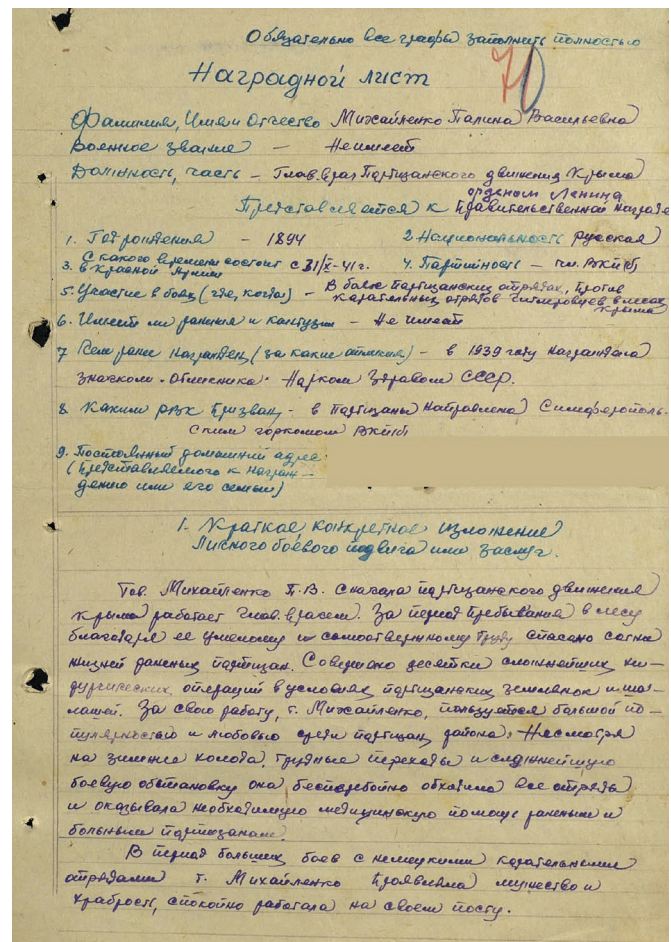 Обязательно все графы заполнить полностью
70
Наградной лист
Фамилия, Имя и Отчество Михайленко Полина Васильевна
Военное звание — Не имеет
Должность, часть — Глав. врач Партизанского движения Крыма
орденом Ленина
Представляется к Правительственной награде
1. Год рождения – 1894 2. Национальность русская
3. С какого времени состоит в Красной Армии с 31/X-41 г. 4. Партийность – чл. ВКП(б)
5. Участие в боях (где, когда) – В боях партизанских отрядах, против
карательных отрядов гитлеровцев в лесах
Крыма
6. Имеет ли ранения и контузии – Не имеет
7 Чем ранее награжден (за какие отличия) – в 1939 году награждена
значком "Отличника" Нарком Здравом СССР.
8. Каким РВК призван – в партизаны направлена Симферополь-
ским горкомом ВКП(б)
9. Постоянный домашний адрес:
(представляемого к награж-
дению или его семьи)
1. Краткое, конкретное изложение
личного боевого подвига или заслуг.
Тов. Михайленко П.В. с начала партизанского движения
Крыма работает глав. врачом. За период пребывания в лесу
благодаря ее умелому и самоотверженному труду спасано сотни
жизней раненых партизан. Совершено десятки сложнейших хи-
рургических операций в условиях партизанских землянок и ша-
лашей. За свою работу, т. Михайленко, пользуется большой по-
пулярностью и любовью среди партизан района. Несмотря
на зимние холода, трудные переходы и сложнейшую
боевую обстановку она бесперебойно обходила все отряды
и оказывала необходимую медицинскую помощь раненым и
больным партизанам.
В период больших боев с немецкими карательными
отрядами т. Михайленко проявляла мужество и
храбрость, спокойно работала на своем посту.